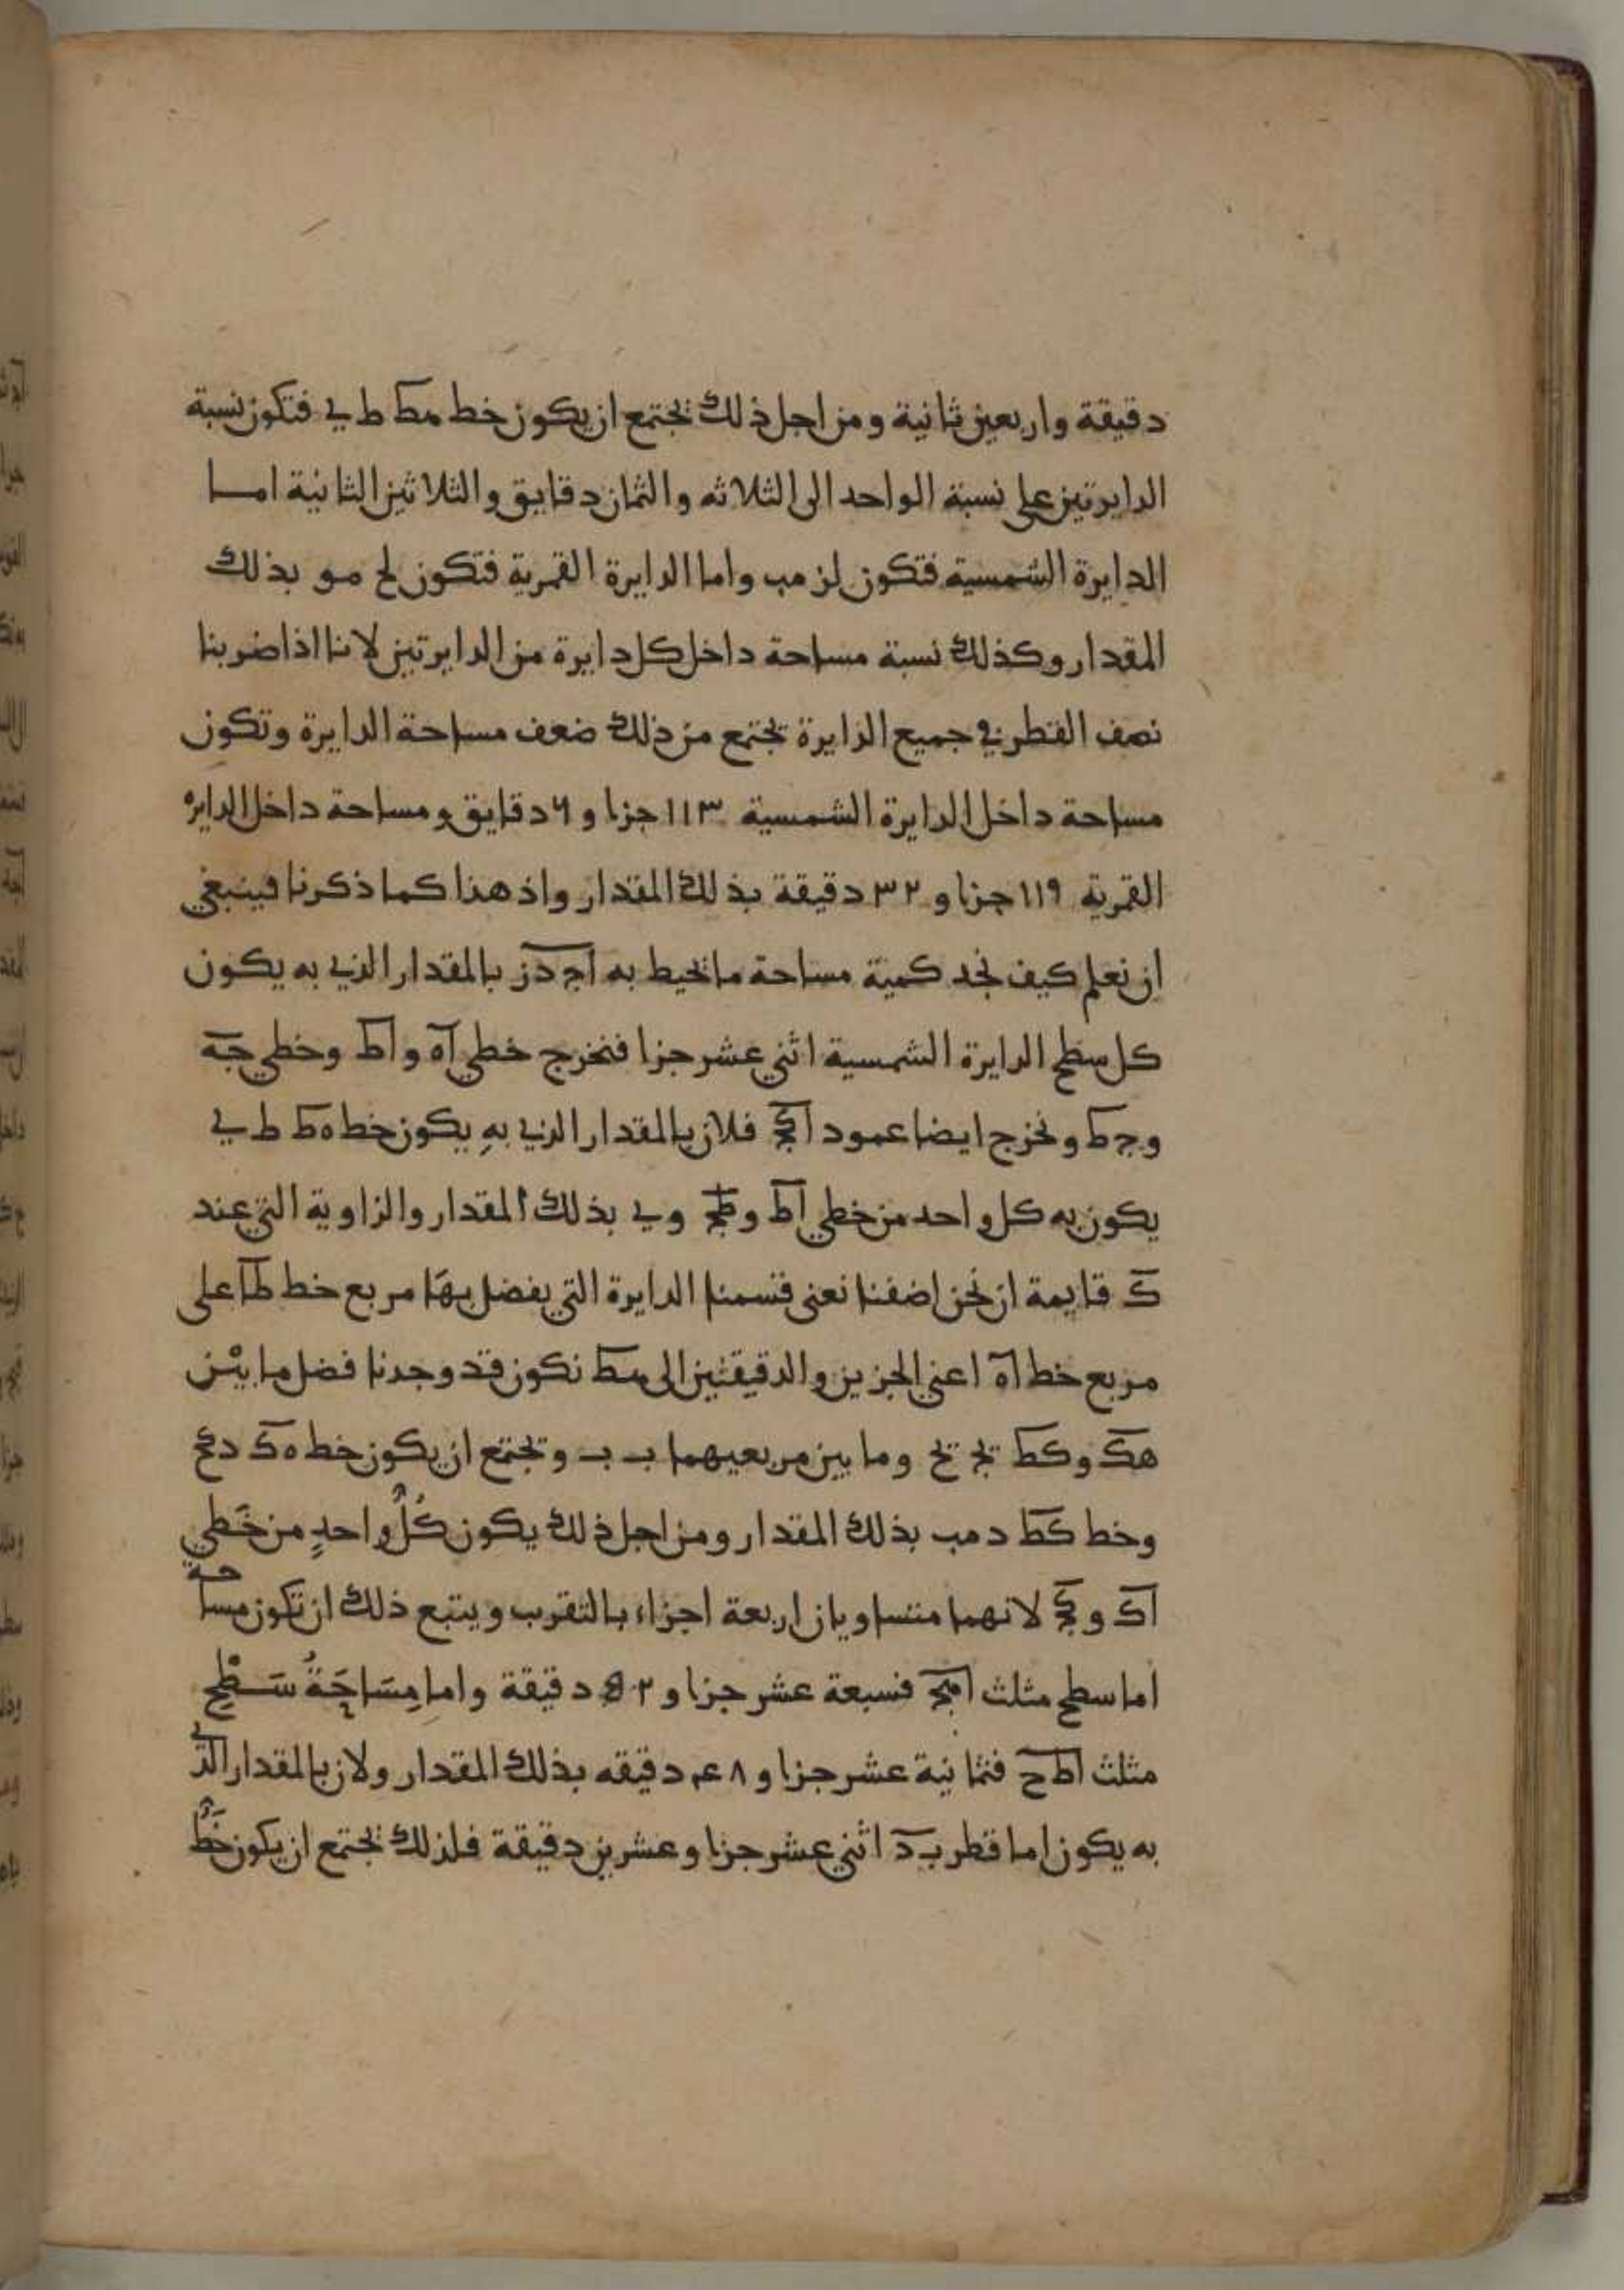 دقيقة واربعين ثانية ومن اجل ذلك يجتمع ان يكون خط مط ط ي فتكون نسبة
الدايرتين على نسبة الواحد الى الثلاثه والثمان دقايق والثلاثين الثانية اما
الدايرة الشمسية فتكون لز مب واما الدايرة القمرية فتكون لح مو بذلك
المقدار وكذلك نسبة مساحة داخل كل دايرة من الدايرتين لاننا اذا ضربنا
نصف القطر في جميع الدايرة يجتمع من ذلك ضعف مساحة الدايرة وتكون
مساحة داخل الدايرة الشمسية ١١٣ جزا و ٦ دقايق ومساحة داخل الدايره
القمرية ١١٩ جزا و ٣٢ دقيقة بذلك المقدار واذ هذا كما ذكرنا فينبغي
ان نعلم كيف نجد كمية مساحة ما يحيط به اج دز بالمقدار الذي به يكون
كل سطح الدايرة الشمسية اثني عشر جزا فنخرج خطي اه و اط وخطي جه
وج ط ونخرج ايضا عمود اكج فلان بالمقدار الذي به يكون خط ه ط ط ي
يكون به كل واحد من خطي اط وطج و ي بذلك المقدار والزاوية التي عند
ك قايمة ان نحن اضفنا نعني قسمنا الدايرة التي يفضل بها مربع خط طا على
مربع خط اه اعني الجزين والدقيقتين الى مط نكون قد وجدنا فضل ما بين
هك وكط وما بين مربعيهما ب ب ويجتمع ان يكون خط ه ك د كح
وخط كط د مب بذلك المقدار ومن اجل ذلك يكون كل واحد من خطي
اك و كج لانهما متساويان اربعة اجزاء بالتقرب ويتبع ذلك ان تكون مساحة
اما سطح مثلث اهج فسبعة عشر جزا و ٥٢ دقيقة واما مساحة سطح
مثلث اط ح فثمانية عشر جزا و ٤٨ دقيقه بذلك المقدار ولان بالمقدار الذي
به يكون اما قطر ب د اثني عشر جزا وعشرين دقيقة فلذلك يجتمع ان يكون خط